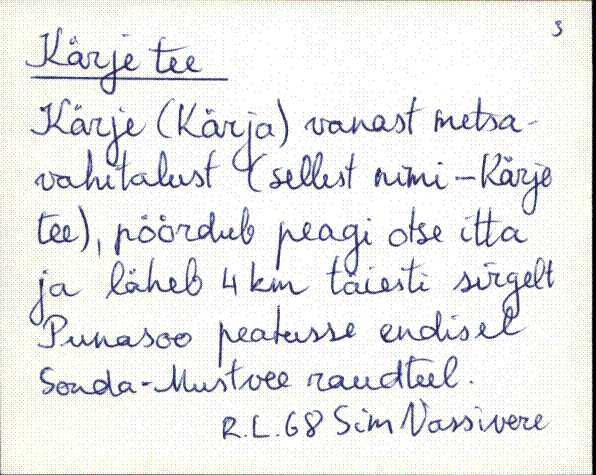 3
Kärje tee
Kärje (Kärja) vanast metsa-
vahitalust (sellest nimi – Kärje
tee), pöördub peagi otse itta
ja läheb 4 km täiesti sirgelt
Punasoo peatusse endisel
Sonda-Mustvee raudteel.
R.L. 68 Sim Vassivere